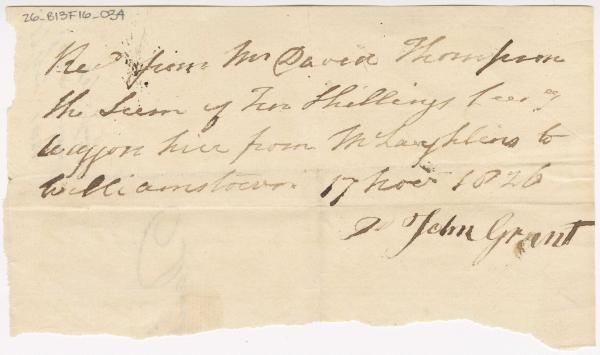 26_B13F16_03A
Recd from Mr David Thompson
the Sum of Ten Shillings
waggon hire from McLaughlins to
Williamstown. 17 Novr 1826
John Grant